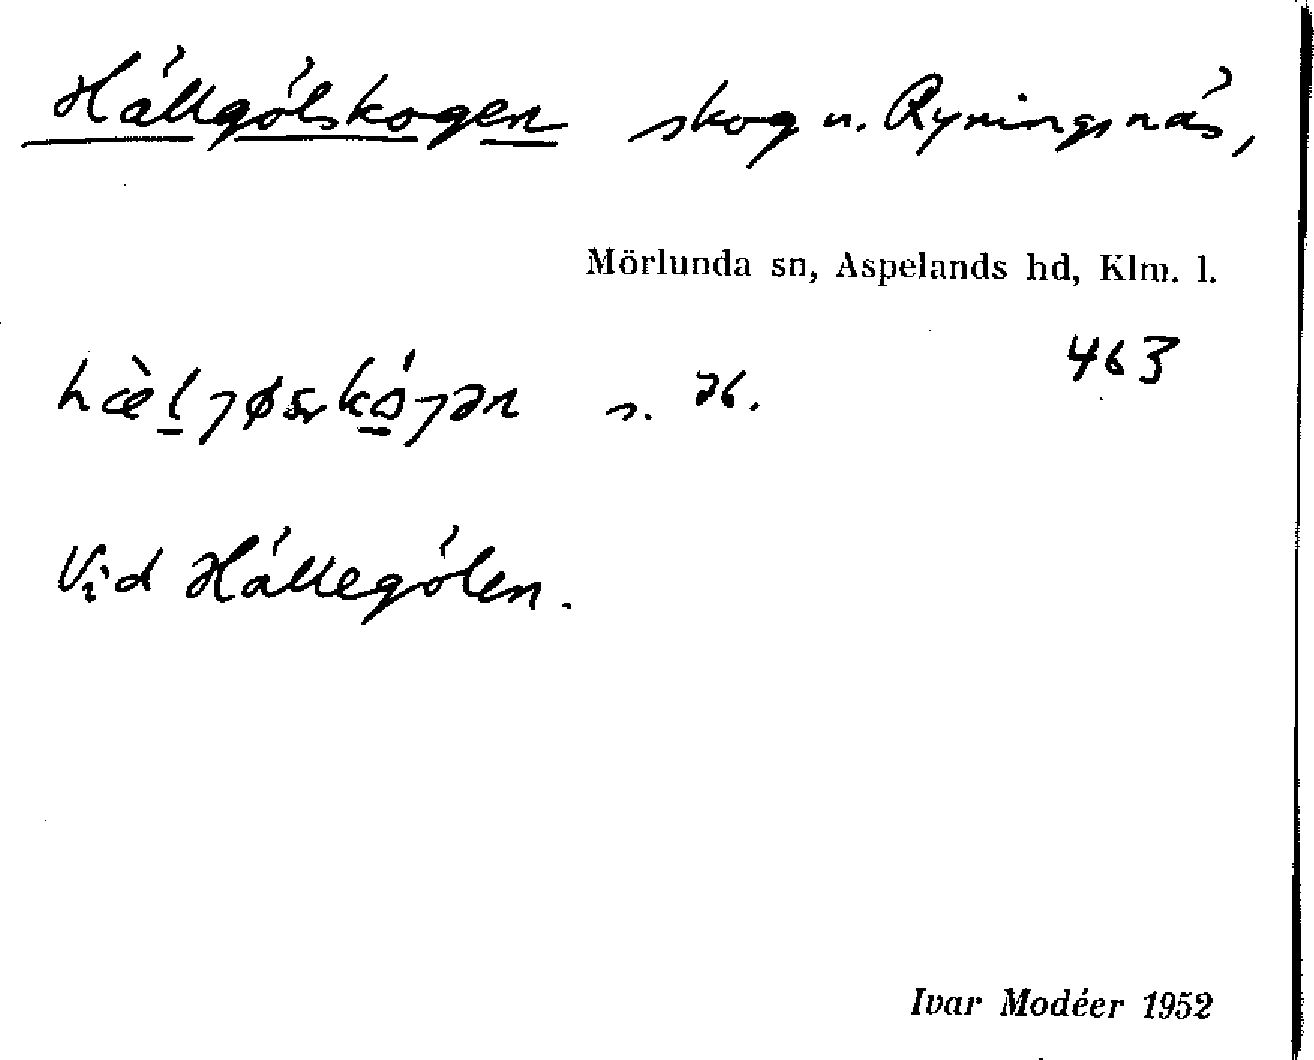 Hällgölskogen skog u. Ryningsnäs,
Mörlunda sn, Aspelands hd, Klm. l.
463
Vid Hällegölen.
Ivar Modéer 1952